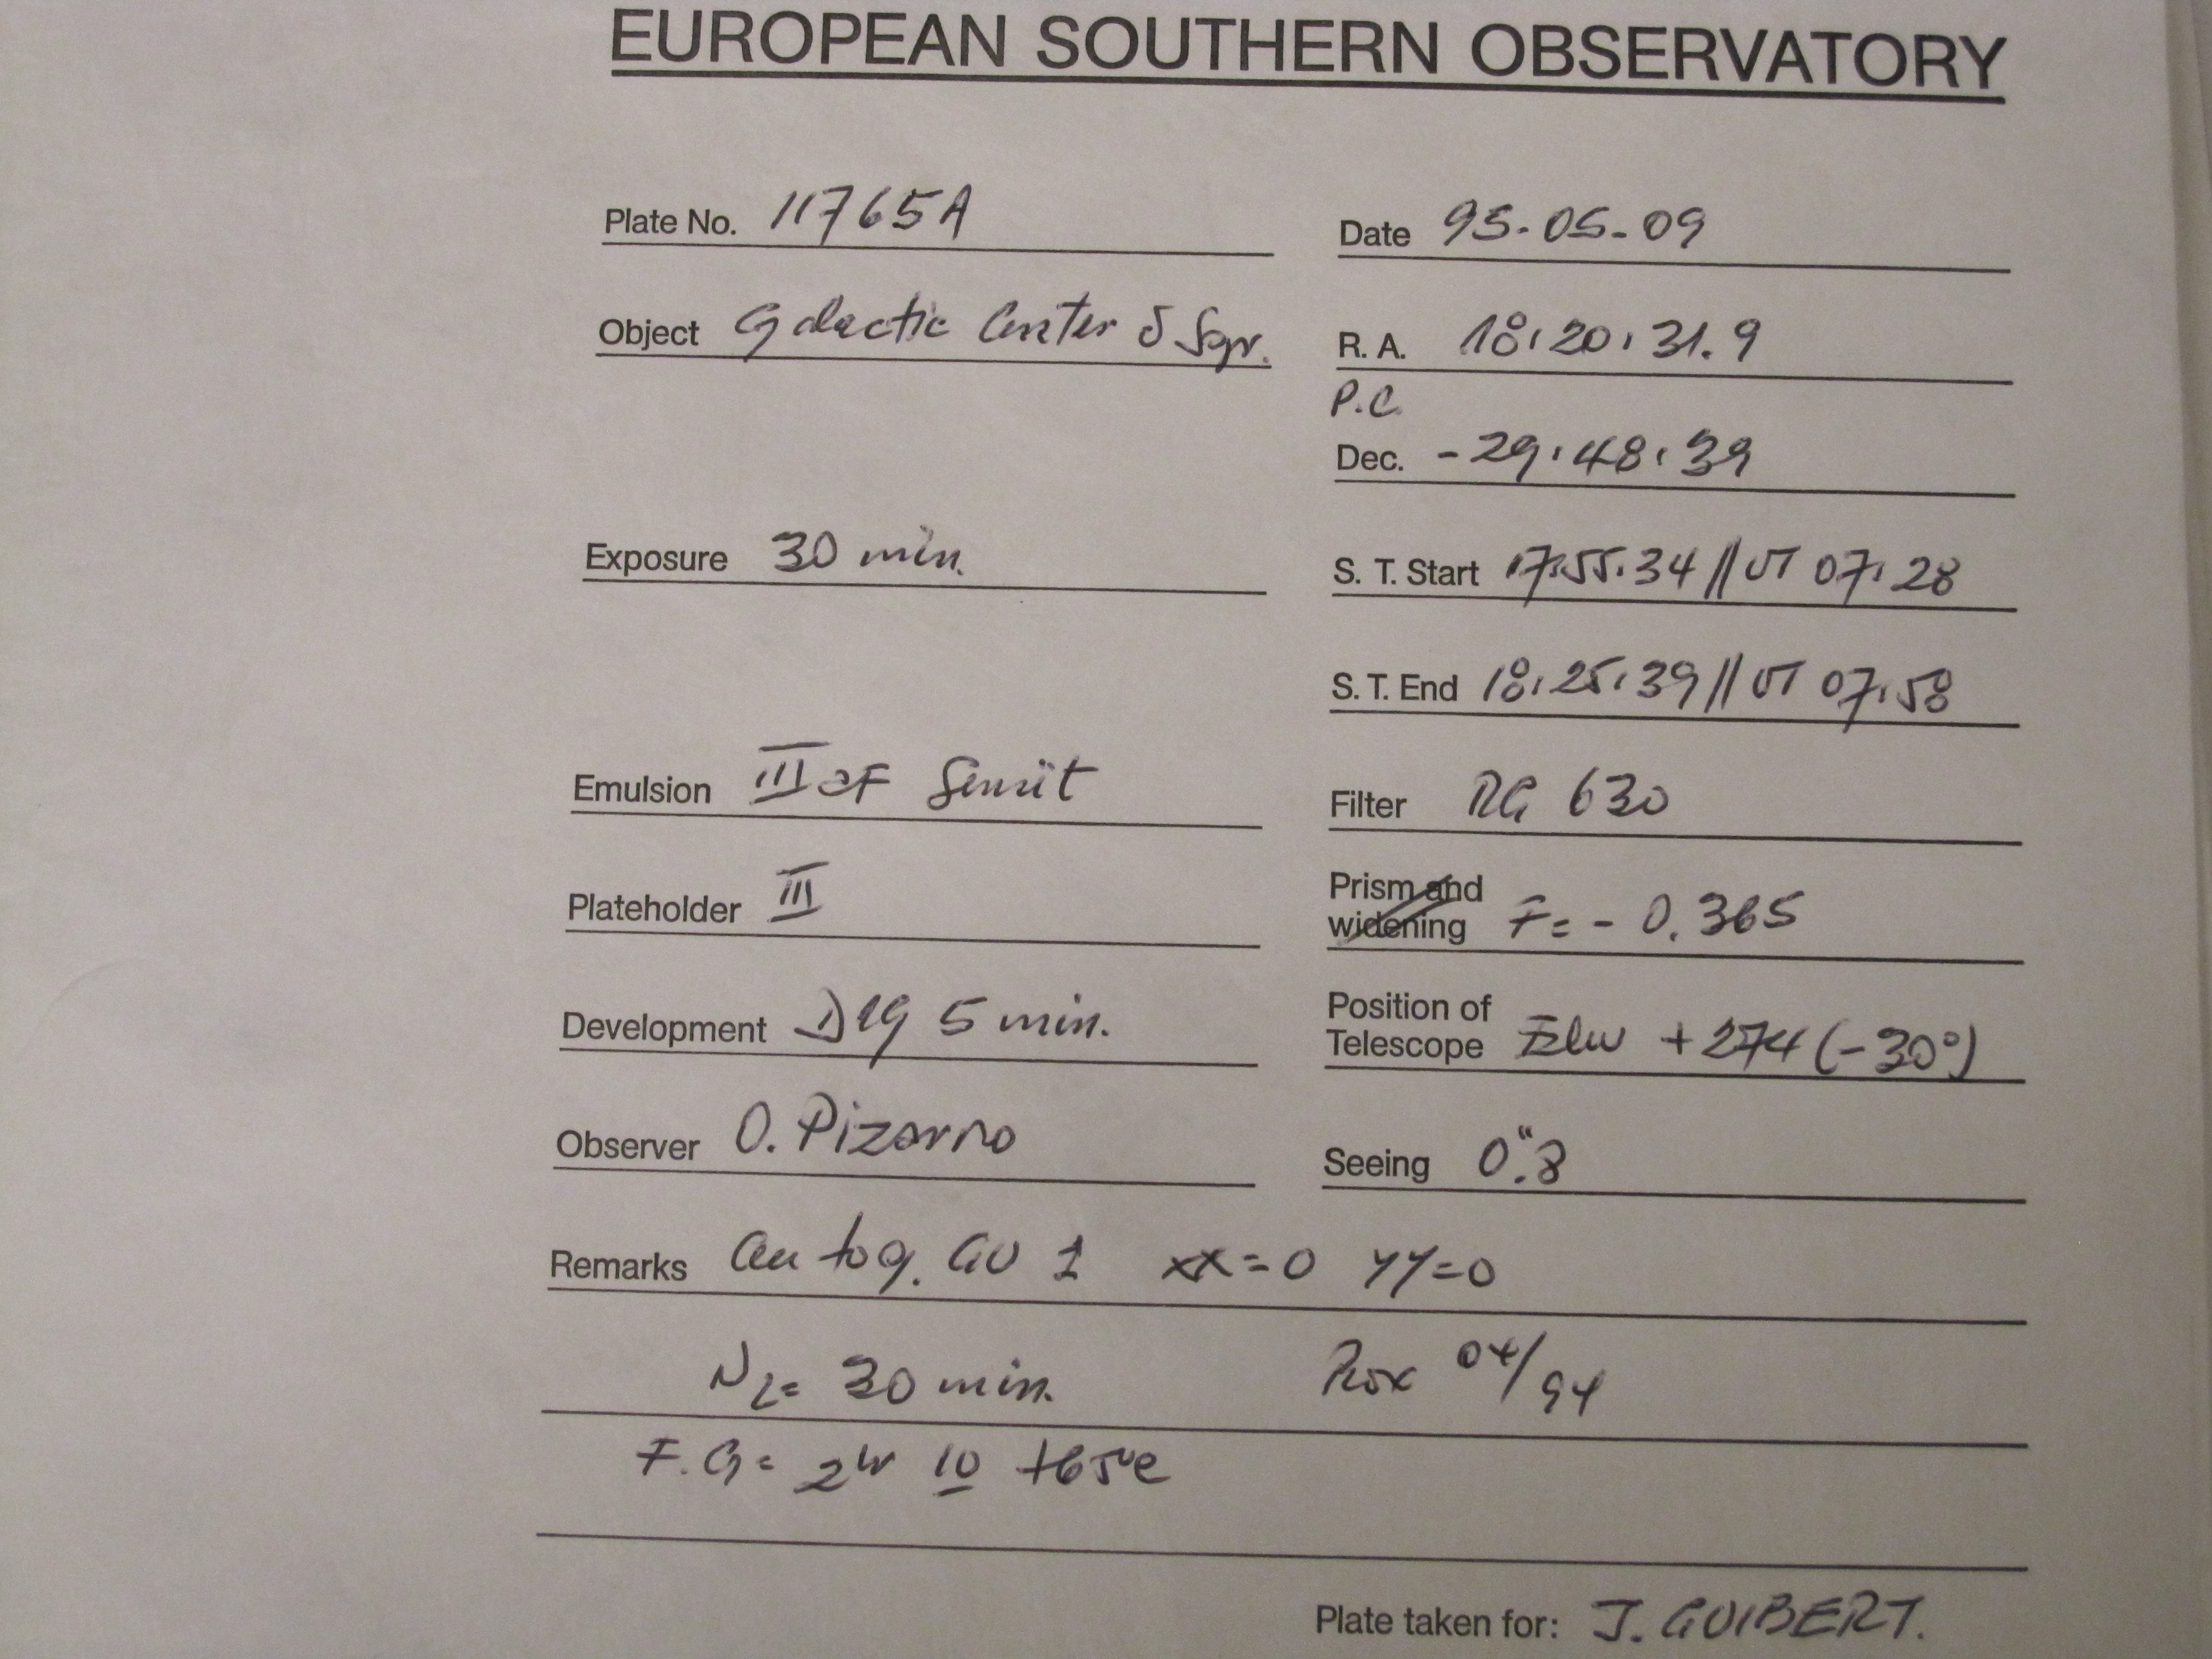 EUROPEAN SOUTHERN OBSERVATORY
Plate No. 11765A
Date 95-05-09
Object Galactic Center δ Sgr.
R. A. 18:20:31.9
P.C.
Dec. -29:48:39
Exposure 30 min.
S. T. Start 17:55:34 // UT 07:28
S. T. End 18:25:39 // UT 07:58
Emulsion III aF Sensit
Filter RG 630
Plateholder III
Prism and
widening F= - 0.365
Development D19 5 min.
Position of
Telescope +274 (-30°)
Observer O. Pizarro
Seeing 0".8
Remarks autog. GU 1 xx=0 yy=0
N2= 30 min. 04/94
F.G= 10 +65°C
Plate taken for: J. GUIBERT.